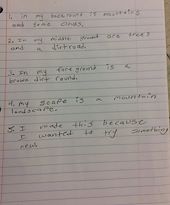 1. in my background is mountains
and some clouds.
2. In my middle ground are trees
and a dirt road.
3. In my fore ground is a
brown dirt round.
4. my scape is a mountain
landscape.
5. I made this because
I wanted to try something
new.